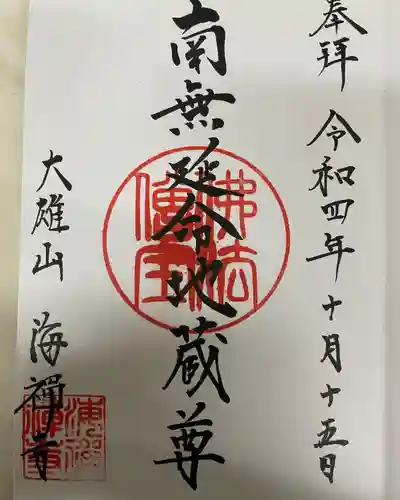 奉拝
令和四年十月十五日
南無延命地蔵尊
佛法僧宝
大雄山
海禅寺